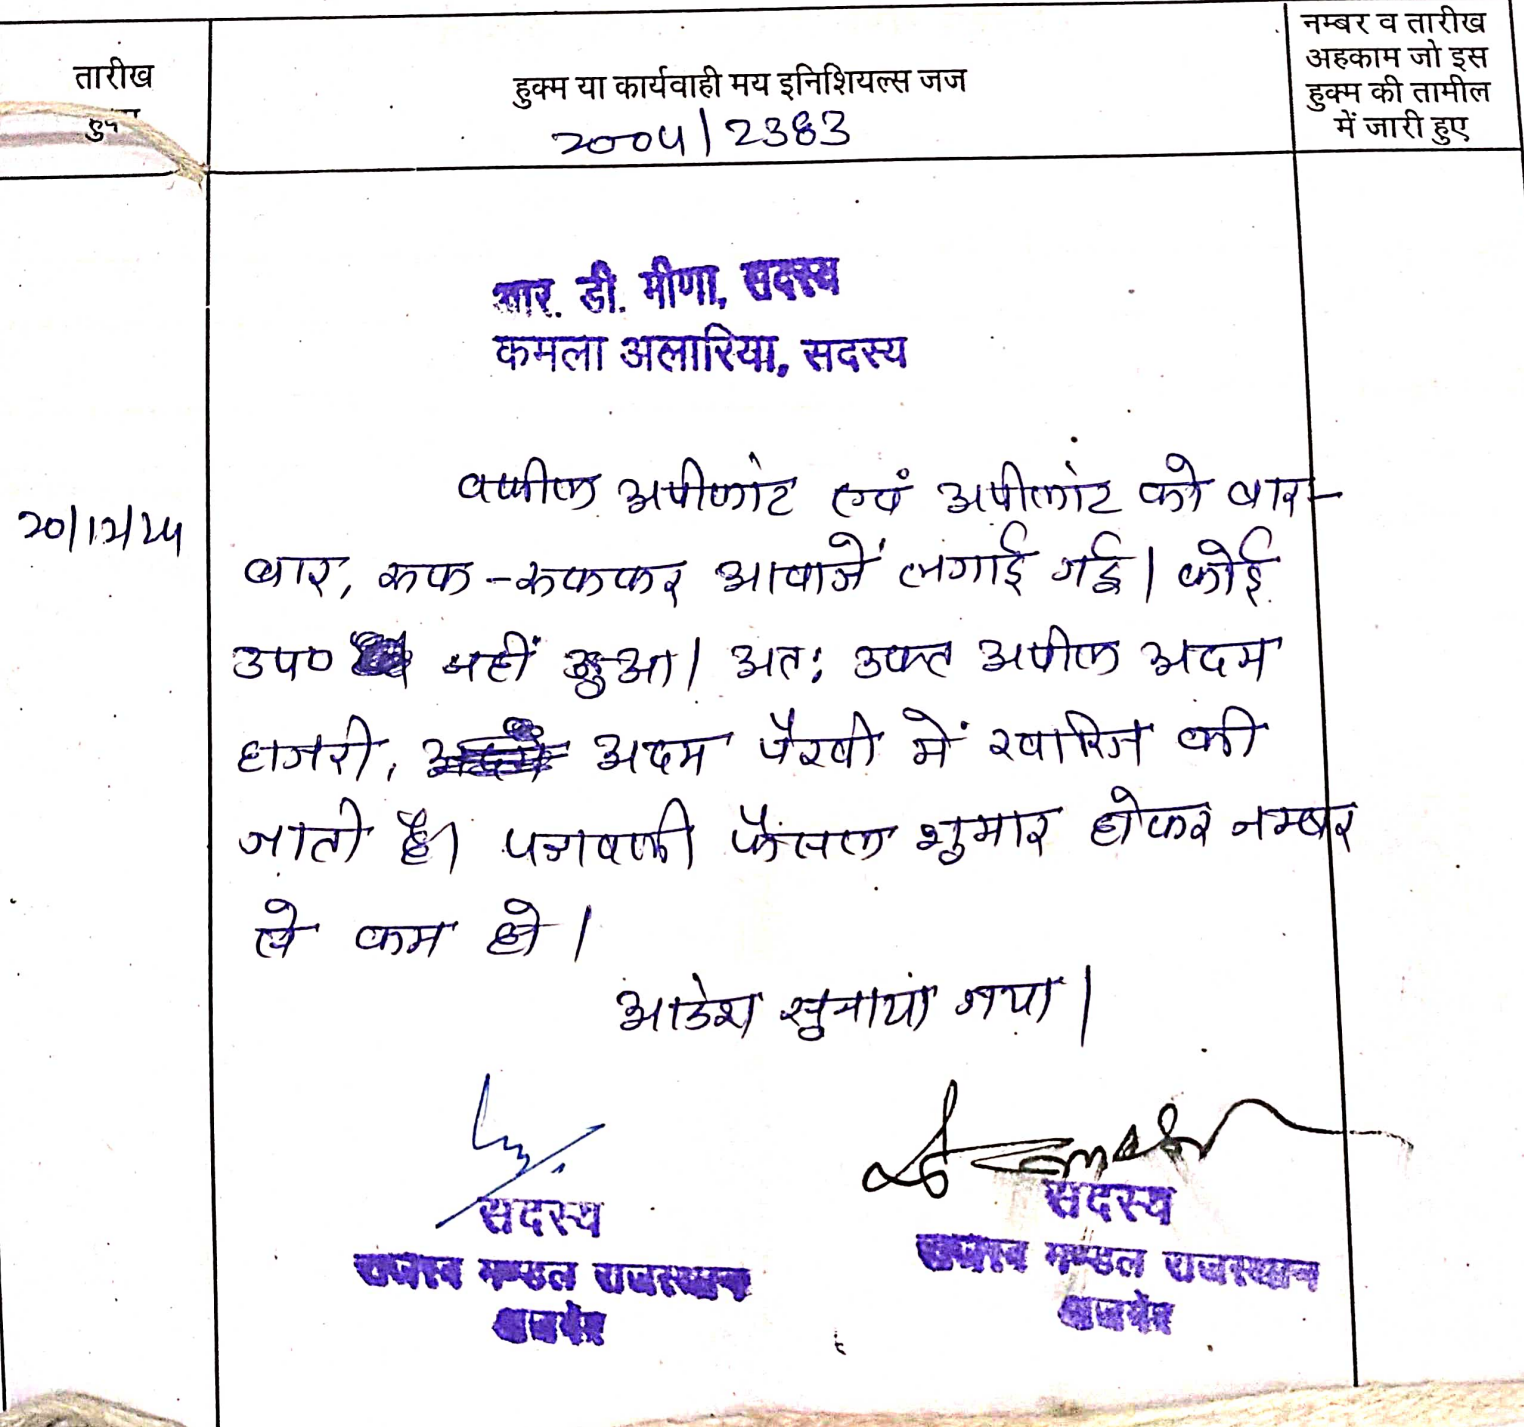 तारीख
हुक्म या कार्यवाही मय इनिशियल्स जज
नम्बर व तारीख
अहकाम जो इस
हुक्म की तामील
में जारी हुए
2004/2383
आर. डी. मीणा, सदस्य
कमला अलारिया, सदस्य
वकील अपीलांट एवं अपीलांट को बार-
बार, रूक-रूककर आवाजें लगाई गई। कोई
उप० नहीं हुआ। अतः उक्त अपील अदम
हाजरी, अदम पैरवी में खारिज की
जाती है। पत्रावली फैसल शुमार होकर नम्बर
से कम हो।
आदेश सुनाया गया।
सदस्य
राजस्व मण्डल राजस्थान
अजमेर
सदस्य
राजस्व मण्डल राजस्थान
अजमेर